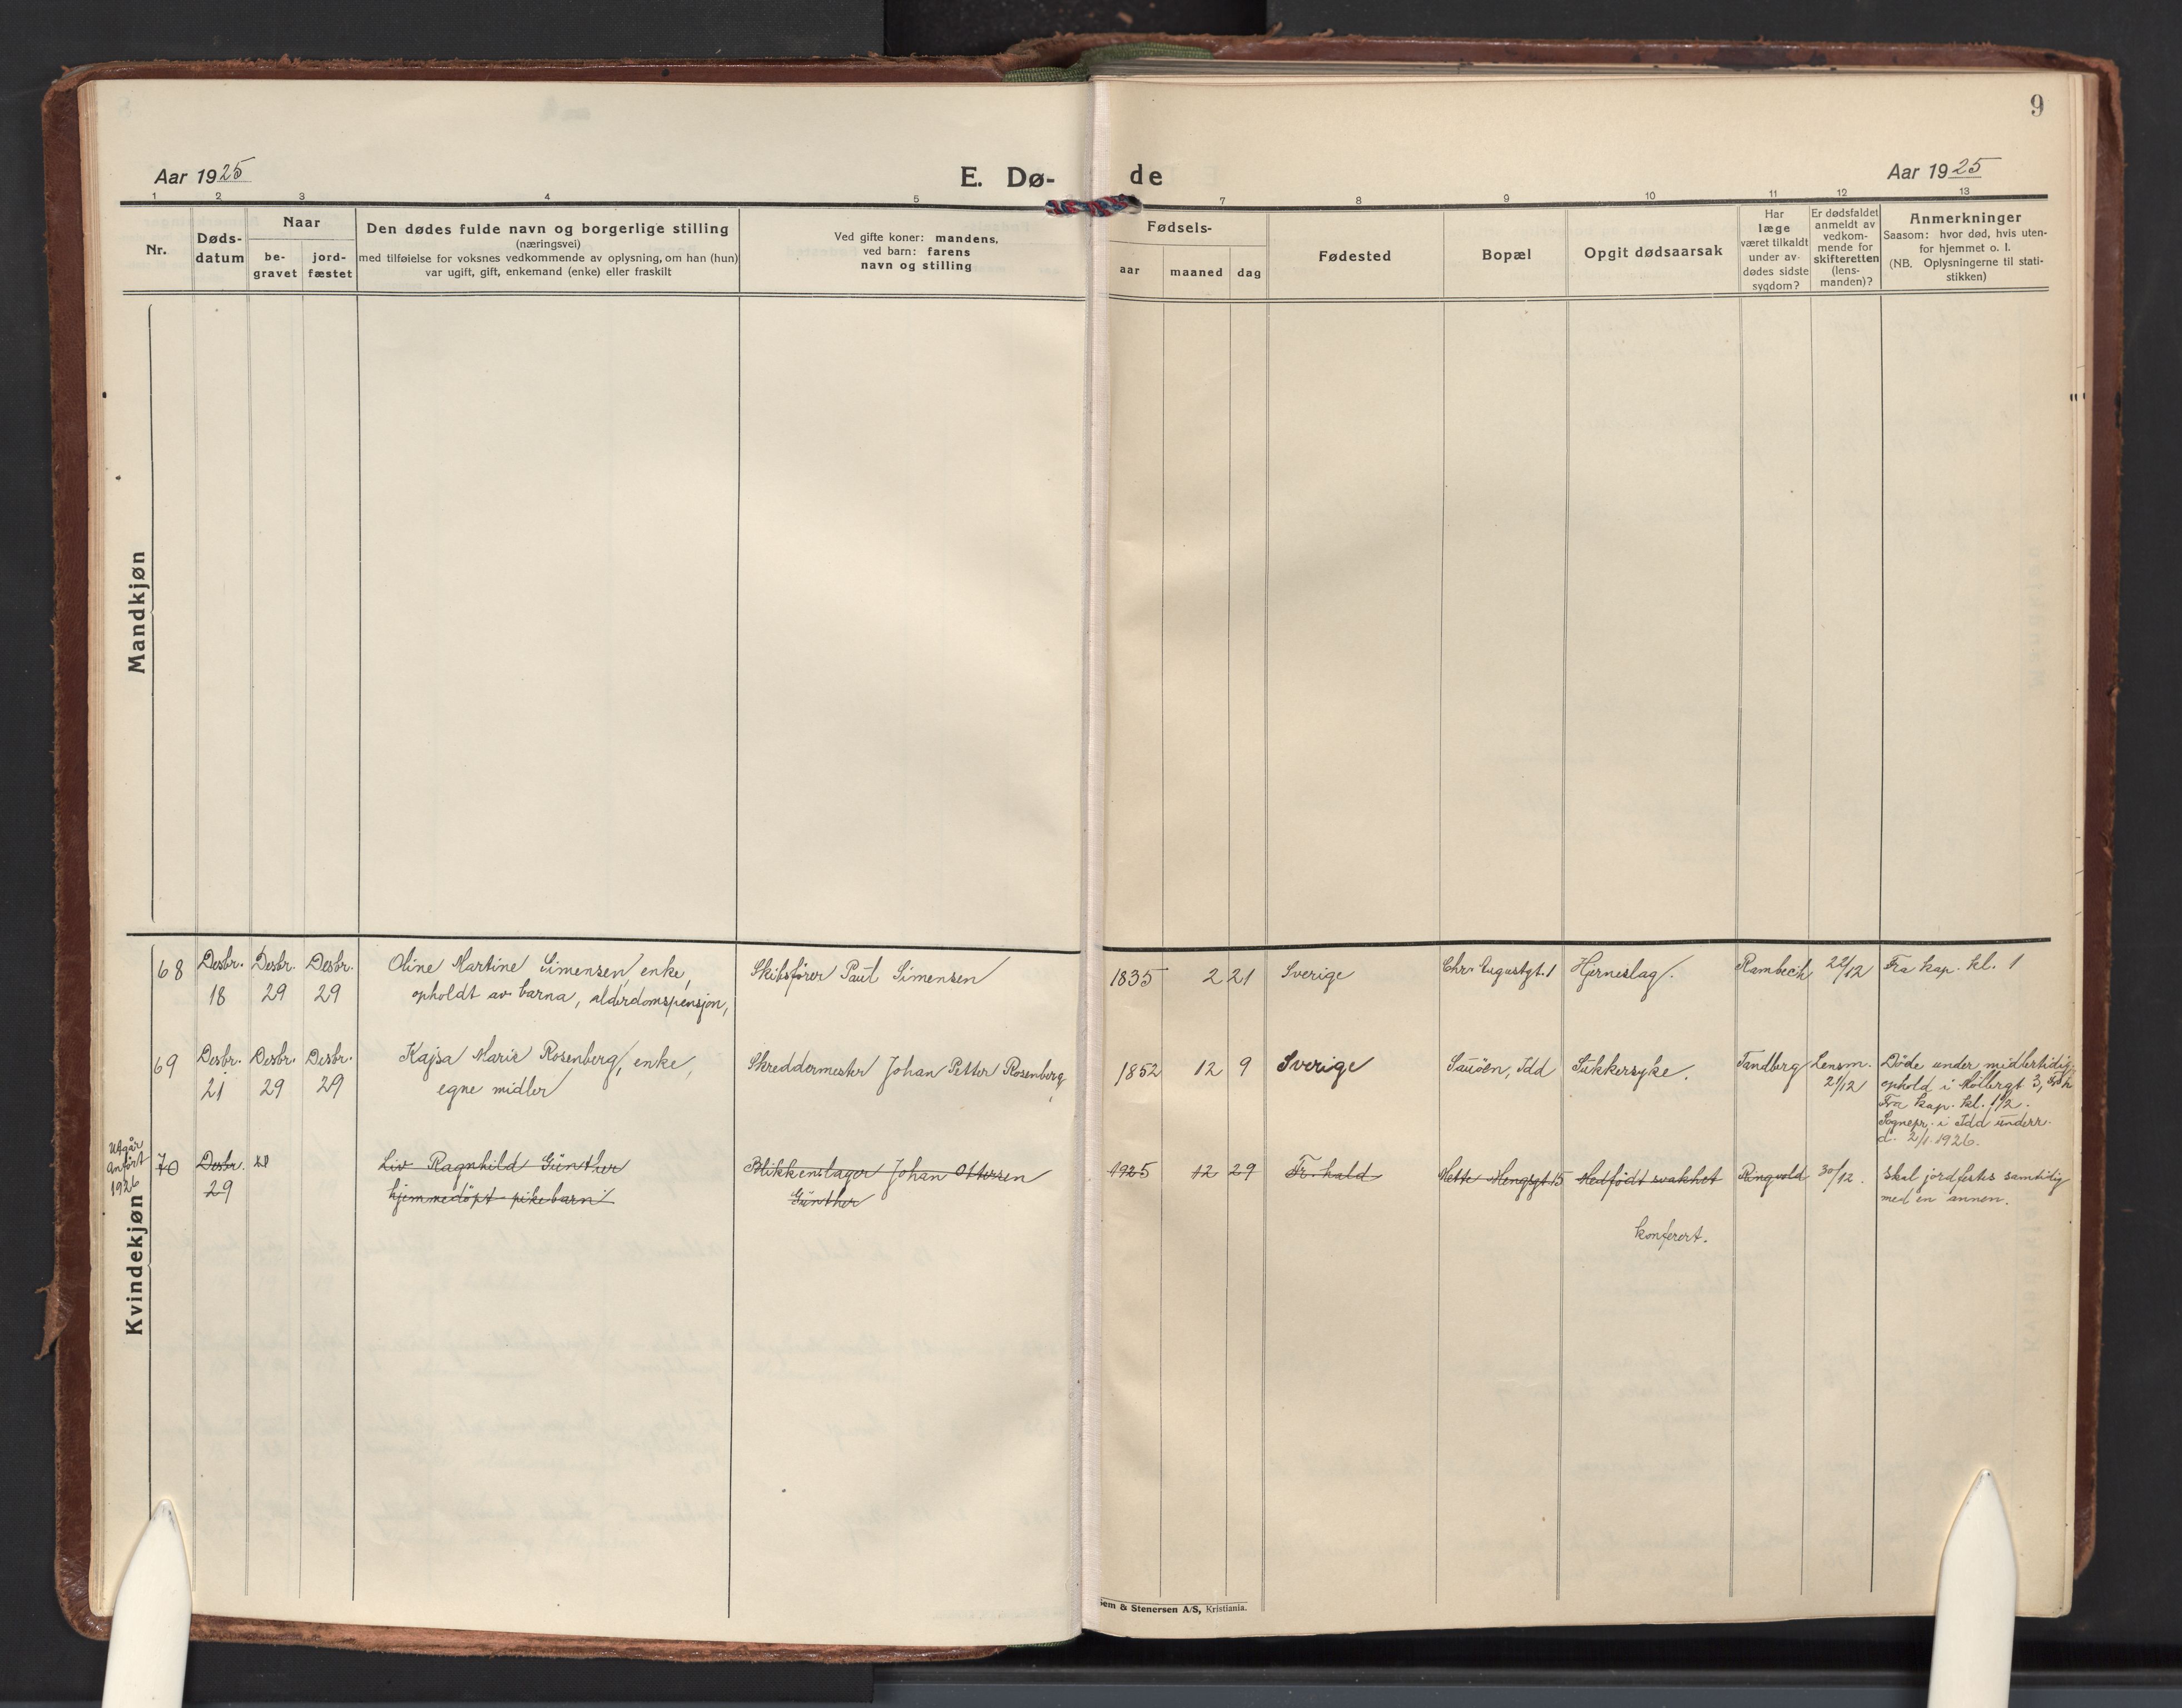 9
Aar 1925
E. Dø-
de
Aar 1925
1 2 3 4 5 7 8 9 10 11 12 13
Nr.
Døds-
datum
Naar
be-
gravet
jord-
fæstet
Den dødes fulde navn og borgerlige stilling
(næringsvei)
med tilføielse for voksnes vedkommende av oplysning, om han (hun)
var ugift, gift, enkemand (enke) eller fraskilt
Ved gifte koner: mandens,
ved barn: farens
navn og stilling
Fødsels-
aar maaned dag
Fødested
Bopæl
Opgit dødsaarsak
Har
læge
været tilkaldt
under av-
dødes sidste
sygdom?
Er dødsfaldet
anmeldt av
vedkom-
mende for
skifteretten
(lens-
manden)?
Anmerkninger
Saasom: hvor død, hvis uten-
for hjemmet o. l.
(NB. Oplysningerne til stati-
stikken)
Mandkjøn
68 Desbr. Desbr. Desbr. Oline Martine Simensen, enke, Skibsfører Paul Simensen 1835 2 21 Sverige Chr. Augustgt. 1 Hjerneslag. Rambech 22/12 Fra kap. kl. 1
18 29 29 opholdt av barna, alderdomspensjon,
69 Desbr. Desbr. Desbr. Kajsa Marie Rosenberg, enke, Skreddermester Johan Petter Rosenberg, 1852 12 9 Sverige Sauöen, Idd Sukkersyke. Tandberg Lensm. Döde under midlertidig
21 29 29 egne midler 21/12 ophold i Möllergt 3, Fr.h
Fra kap. kl. 1 1/2.
Sognepr. i Idd underr.
d. 2/1. 1926.
Utgår
anført
1926
70 Desbr. Liv Ragnhild Günther Blikkenslager Johan Ottersen 1925 12 29 Fr.hald Mette Mengsgt. 15 Medfødt svakhet Ringvold 30/12. Skal jordfestes samtidig
29 hjemmedöpt pikebarn Günther med en annen.
konferert.
Kvindekjøn
em & Stenersen A/S, Kristiania.